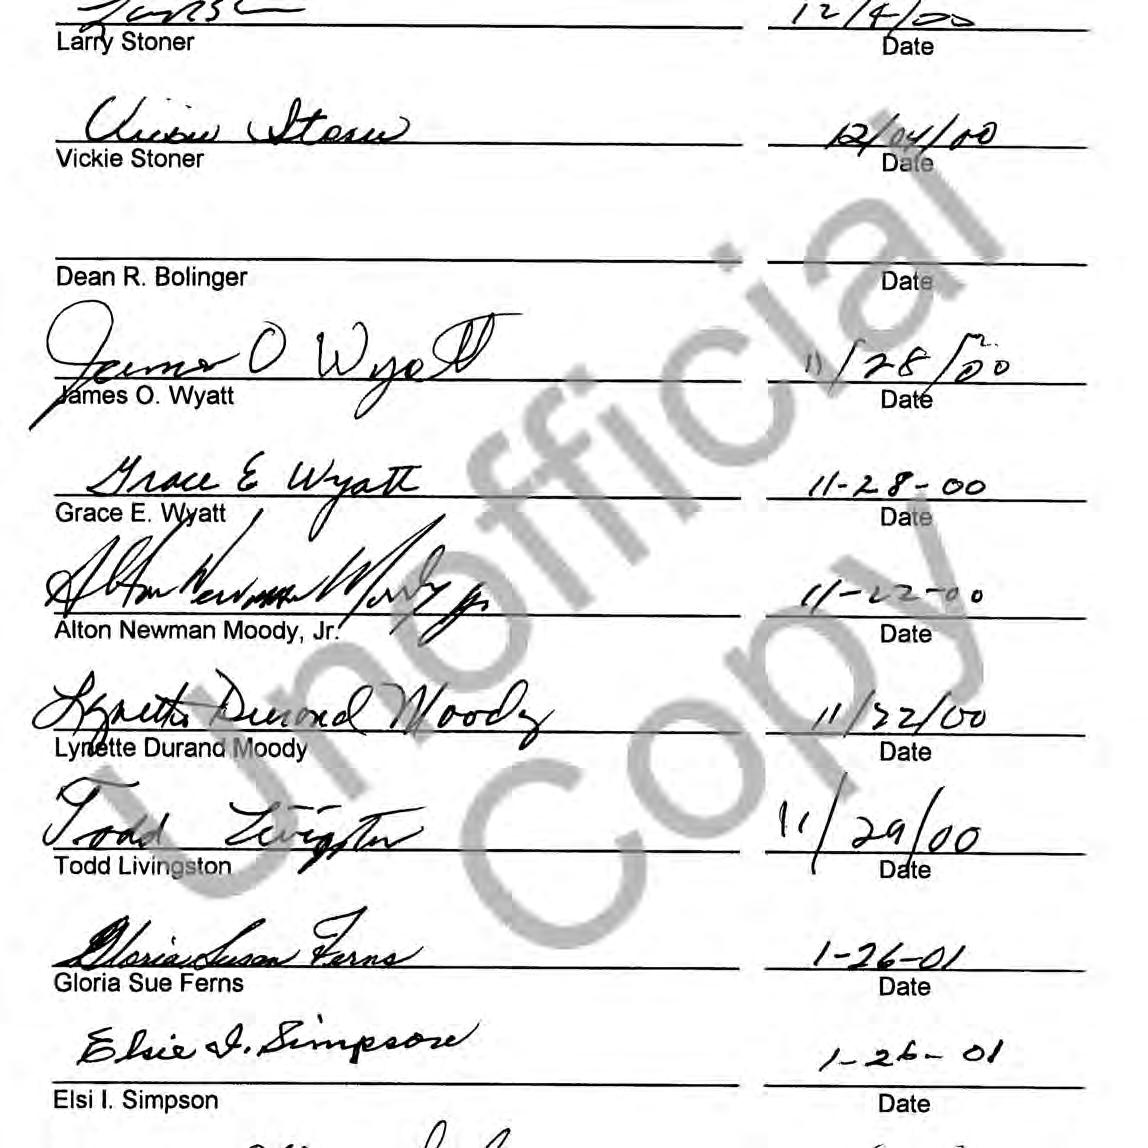 12/4/00
Larry Stoner Date
Vickie Stoner 12/04/00
Vickie Stoner Date
Dean R. Bolinger Date
James O Wyatt 11/28/00
James O. Wyatt Date
Grace E Wyatt 11-28-00
Grace E. Wyatt Date
Alton Newman Moody Jr 11-22-00
Alton Newman Moody, Jr. Date
Lynette Durand Moody 11/22/00
Lynette Durand Moody Date
Todd Livingston 11/29/00
Todd Livingston Date
Gloria Susan Ferns 1-26-01
Gloria Sue Ferns Date
Elsie I. Simpson 1-26-01
Elsi I. Simpson Date
Unofficial
Copy